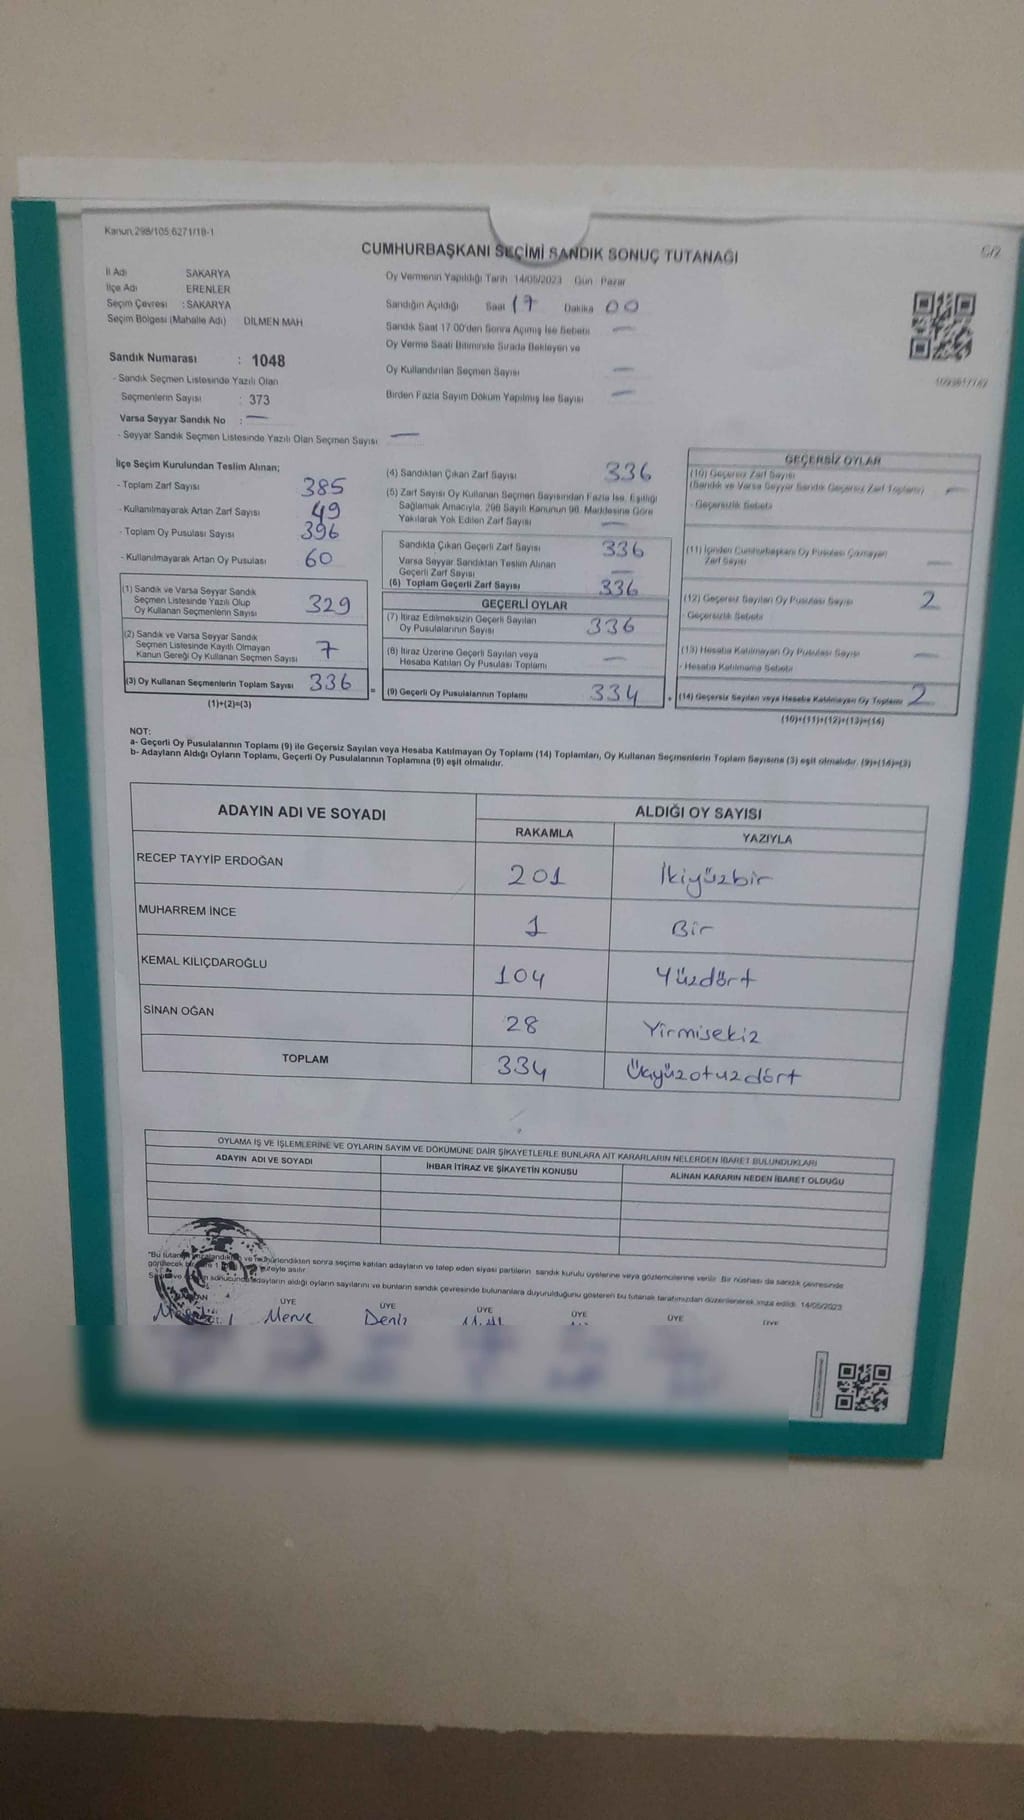 Kanun 298/105;6271/18-1
CUMHURBAŞKANI SEÇİMİ SANDIK SONUÇ TUTANAĞI
İl Adı SAKARYA
İlçe Adı ERENLER
Seçim Çevresi : SAKARYA
Seçim Bölgesi (Mahalle Adı) DİLMEN MAH
Sandık Numarası : 1048
- Sandık Seçmen Listesinde Yazılı Olan
Seçmenlerin Sayısı : 373
Varsa Seyyar Sandık No : —
- Seyyar Sandık Seçmen Listesinde Yazılı Olan Seçmen Sayısı —
Oy Vermenin Yapıldığı Tarih 14/05/2023 Gün Pazar
Sandığın Açıldığı Saat 17 Dakika 00
Sandık Saat 17 00'den Sonra Açılmış İse Sebebi —
Oy Verme Saati Bitiminde Sırada Bekleyen ve
Oy Kullandırılan Seçmen Sayısı —
Birden Fazla Sayım Döküm Yapılmış İse Sayısı —
İlçe Seçim Kurulundan Teslim Alınan;
- Toplam Zarf Sayısı 385
- Kullanılmayarak Artan Zarf Sayısı 49
- Toplam Oy Pusulası Sayısı 396
- Kullanılmayarak Artan Oy Pusulası 60
(1) Sandık ve Varsa Seyyar Sandık
Seçmen Listesinde Yazılı Olup
Oy Kullanan Seçmenlerin Sayısı 329
(2) Sandık ve Varsa Seyyar Sandık
Seçmen Listesinde Kayıtlı Olmayan
Kanun Gereği Oy Kullanan Seçmen Sayısı 7
(3) Oy Kullanan Seçmenlerin Toplam Sayısı 336 =
(1)+(2)=(3)
(4) Sandıktan Çıkan Zarf Sayısı 336
(5) Zarf Sayısı Oy Kullanan Seçmen Sayısından Fazla İse, Eşitliği
Sağlamak Amacıyla, 298 Sayılı Kanunun 98. Maddesine Göre
Yakılarak Yok Edilen Zarf Sayısı —
Sandıkta Çıkan Geçerli Zarf Sayısı 336
Varsa Seyyar Sandıktan Teslim Alınan
Geçerli Zarf Sayısı —
(6) Toplam Geçerli Zarf Sayısı 336
GEÇERLİ OYLAR
(7) İtiraz Edilmeksizin Geçerli Sayılan
Oy Pusulalarının Sayısı 336
(8) İtiraz Üzerine Geçerli Sayılan veya
Hesaba Katılan Oy Pusulası Toplamı —
(9) Geçerli Oy Pusulalarının Toplamı 334 +
GEÇERSİZ OYLAR
(10) Geçersiz Zarf Sayısı
(Sandık ve Varsa Seyyar Sandık Geçersiz Zarf Toplamı) —
- Geçersizlik Sebebi
(11) İçinden Cumhurbaşkanı Oy Pusulası Çıkmayan
Zarf Sayısı —
(12) Geçersiz Sayılan Oy Pusulası Sayısı 2
- Geçersizlik Sebebi
(13) Hesaba Katılmayan Oy Pusulası Sayısı —
- Hesaba Katılmama Sebebi
(14) Geçersiz Sayılan veya Hesaba Katılmayan Oy Toplamı 2
(10)+(11)+(12)+(13)=(14)
NOT:
a- Geçerli Oy Pusulalarının Toplamı (9) ile Geçersiz Sayılan veya Hesaba Katılmayan Oy Toplamı (14) Toplamları, Oy Kullanan Seçmenlerin Toplam Sayısına (3) eşit olmalıdır. (9)+(14)=(3)
b- Adayların Aldığı Oyların Toplamı, Geçerli Oy Pusulalarının Toplamına (9) eşit olmalıdır.
ADAYIN ADI VE SOYADI ALDIĞI OY SAYISI
RAKAMLA YAZIYLA
RECEP TAYYİP ERDOĞAN 201 İkiyüzbir
MUHARREM İNCE 1 Bir
KEMAL KILIÇDAROĞLU 104 Yüzdört
SİNAN OĞAN 28 Yirmisekiz
TOPLAM 334 Üçyüzotuzdört
OYLAMA İŞ VE İŞLEMLERİNE VE OYLARIN SAYIM VE DÖKÜMÜNE DAİR ŞİKAYETLERLE BUNLARA AİT KARARLARIN NELERDEN İBARET BULUNDUKLARI
ADAYIN ADI VE SOYADI İHBAR İTİRAZ VE ŞİKAYETİN KONUSU ALINAN KARARIN NEDEN İBARET OLDUĞU
"Bu ve mühürlendikten sonra seçime katılan adayların ve talep eden siyasi partilerin sandık kurulu üyelerine veya gözlemcilerine verilir. Bir nüshası da sandık çevresinde
görülecek süreyle asılır.
adayların aldığı oyların sayılarını ve bunların sandık çevresinde bulunanlara duyurulduğunu gösteren bu tutanak tarafımızdan düzenlenerek imza edildi. 14/05/2023
ÜYE ÜYE ÜYE ÜYE ÜYE ÜYE
Merve Deniz